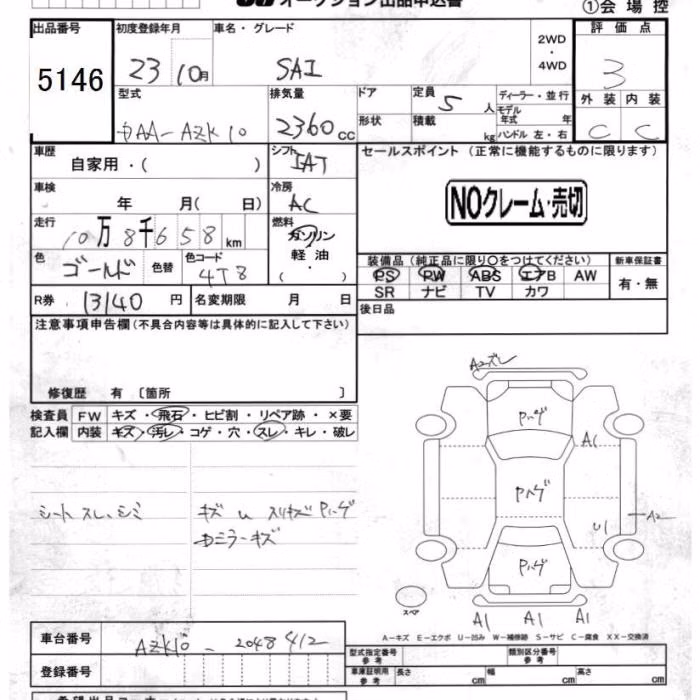 オークション出品申込書
①会 場 控
出品番号
5146
初度登録年月
23 10月
車名・グレード
SAI
2WD
・
4WD
評 価 点
3
型式
DAA-AZK10
排気量
2360cc
ドア
定員 5 人
形状
積載 kg
ディーラー・並行
モデル年式 年
ハンドル 左・右
外 装
内 装
C
C
車歴
自家用・( )
シフト
IAT
セールスポイント (正常に機能するものに限ります)
NOクレーム・売切
車検
年 月( 日)
冷房
AC
走行
10万8千658km
燃料
ガソリン
軽 油
( ・ )
色
ゴールド
色替
色コード
4T8
装備品(純正品に限り○をつけてください)
PS PW ABS エアB AW
SR ナビ TV カワ
新車保証書
有・無
R券 13140 円
名変期限 月 日
後日品
注意事項申告欄(不具合内容等は具体的に記入して下さい)
修復歴 有 〔箇所 〕
検査員
記入欄
FW キズ・飛石・ヒビ割・リペア跡・×要
内装 キズ・汚レ・コゲ・穴・スレ・キレ・破レ
シートスレ、シミ
キズ u スリキズ Pハゲ
Dミラーキズ
A2ズレ
Pハゲ
A1
Pハゲ
U1
A2
Pハゲ
スペア
A1 A1 A1
A-キズ E-エクボ U-凹み W-補修跡 S-サビ C-腐食 XX-交換済
車台番号
AZK10-2048412
登録番号
型式指定番号
参 考
類別区分番号
参 考
車庫証明用
参 考
長さ cm
幅 cm
高さ cm